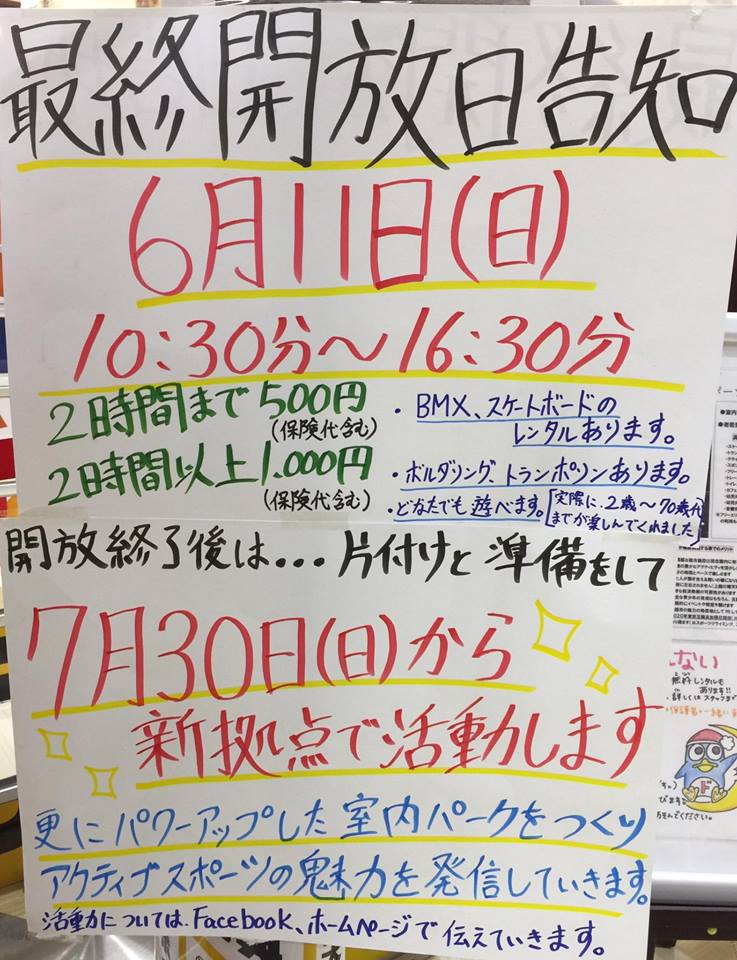 最終開放日告知
6月11日(日)
10:30分〜16:30分
2時間まで500円
(保険代含む)
2時間以上1.000円
(保険代含む)
・BMX、スケートボードの
レンタルあります。
・ボルダリング、トランポリンあります。
・どなたでも遊べます。[実際に、2歳〜70歳代
までが楽しんでくれました]
開放終了後は...片付けと準備をして
7月30日(日)から
新拠点で活動します
更にパワーアップした室内パークをつくり
アクティブスポーツの魅力を発信していきます。
活動力については、Facebook、ホームページで伝えていきます。
ない
レンタルも
あります!!
詳しくはスタッフまで
ド